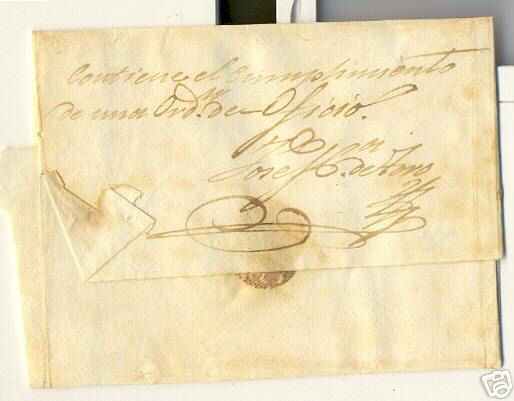 Contiene el Cumplimiento
de una Ordn. de Oficio.
Josef de Toro